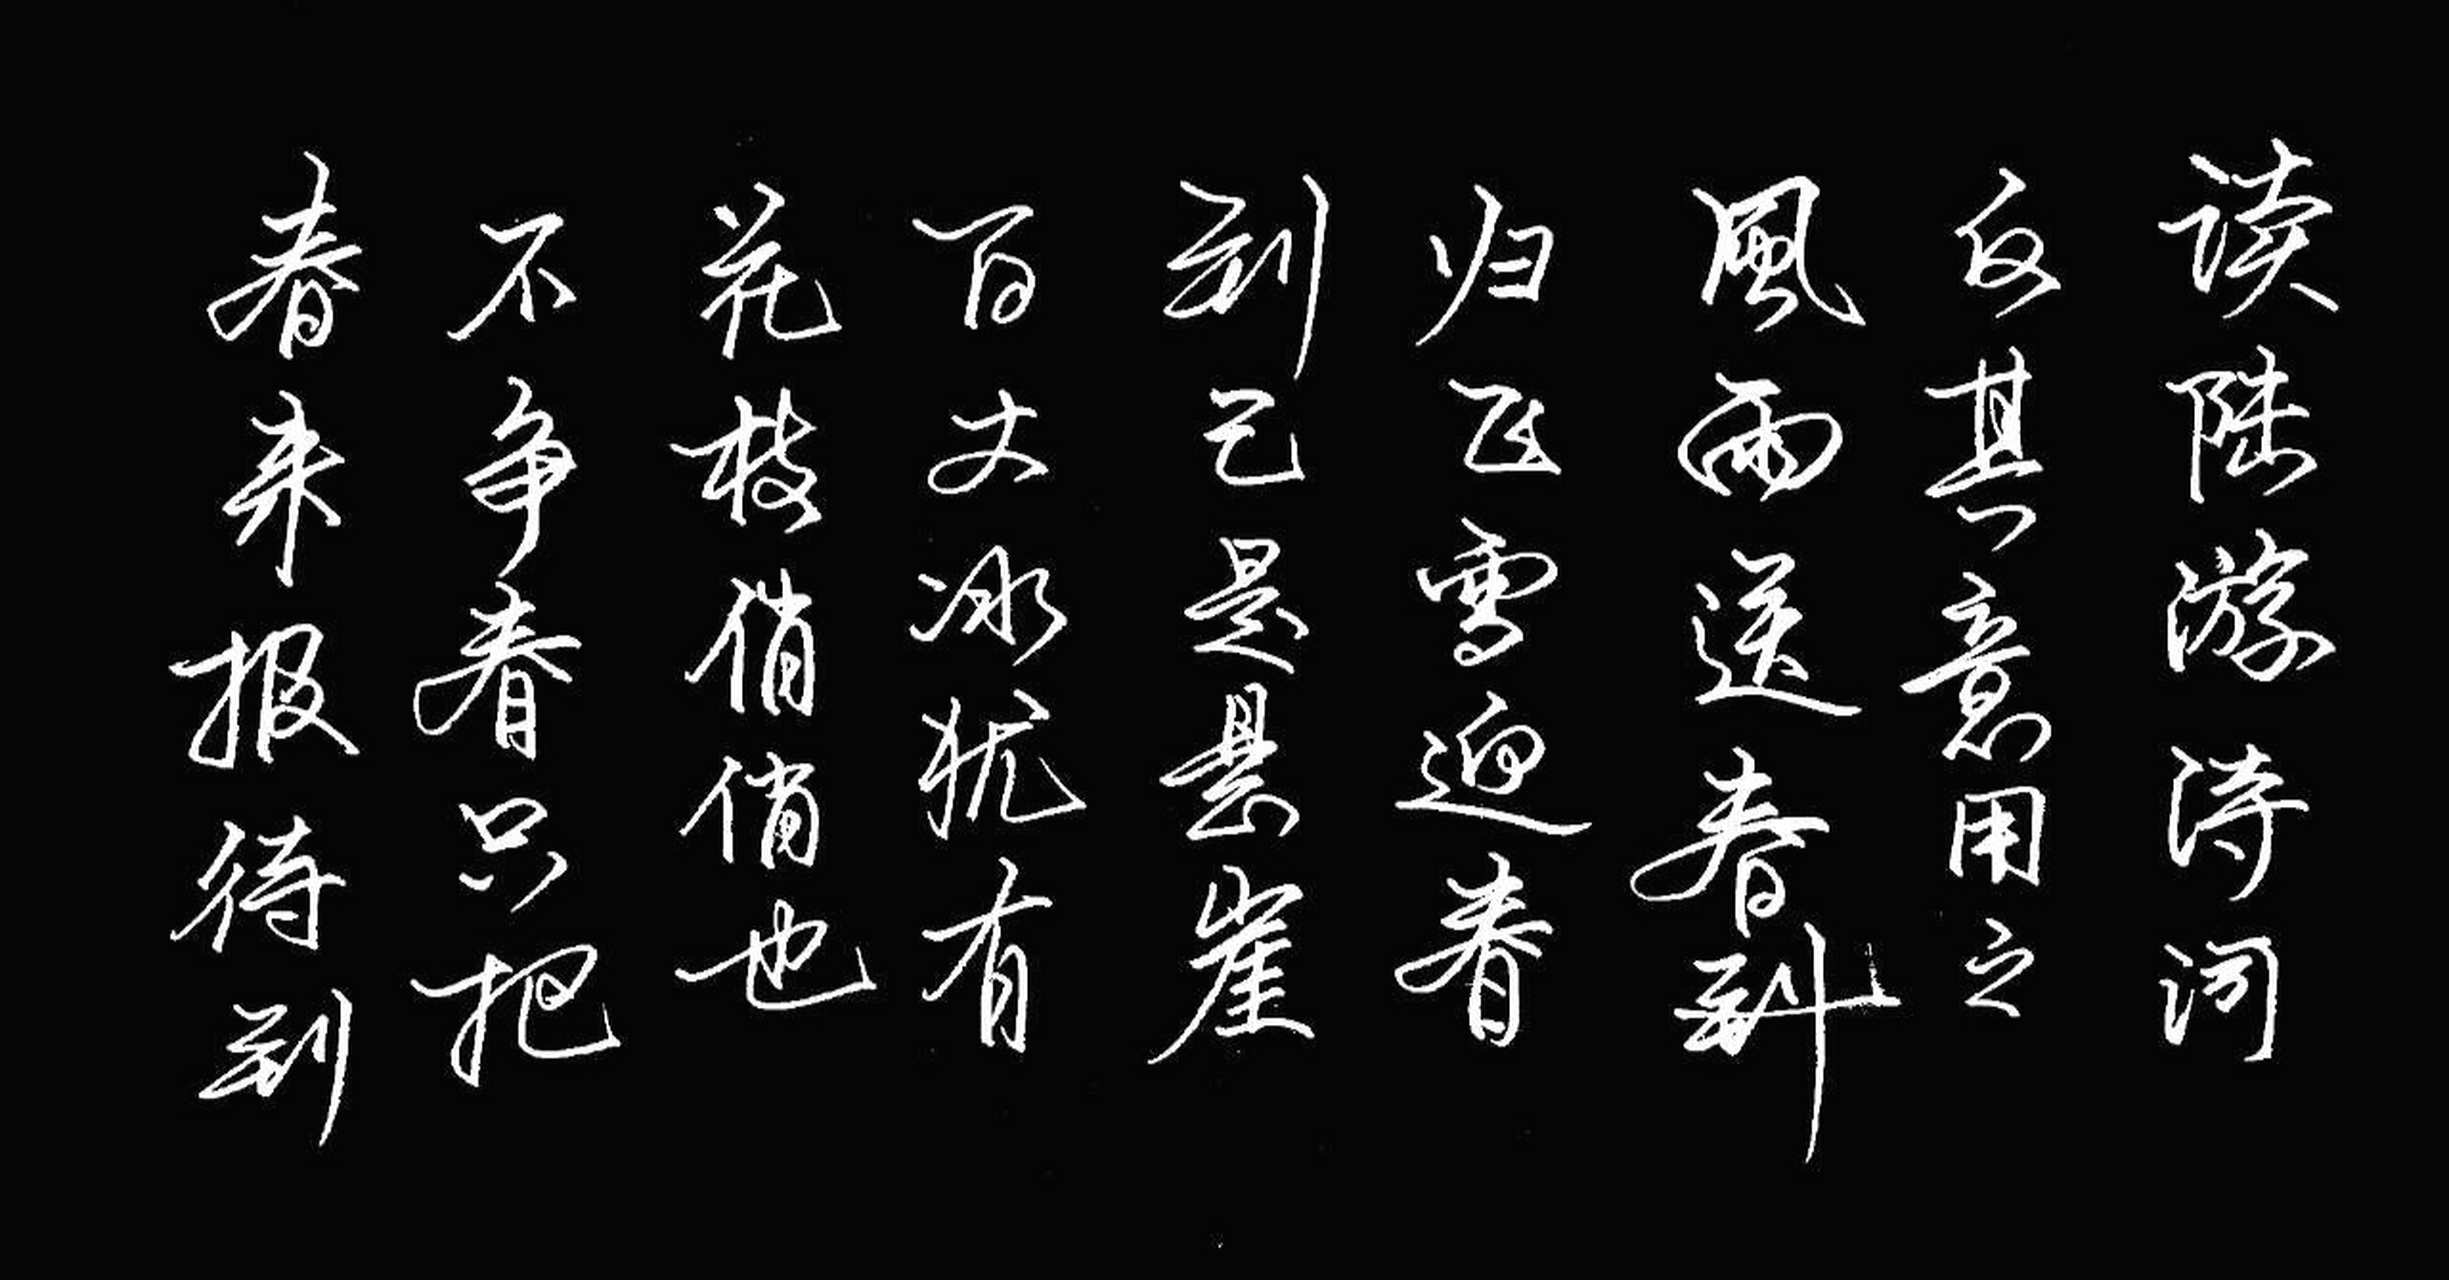 读陆游诗词
反其意用之
風雨送春到
归飞雪迎春
到已是悬崖
百丈冰犹有
花枝俏俏也
不争春只把
春来报待到